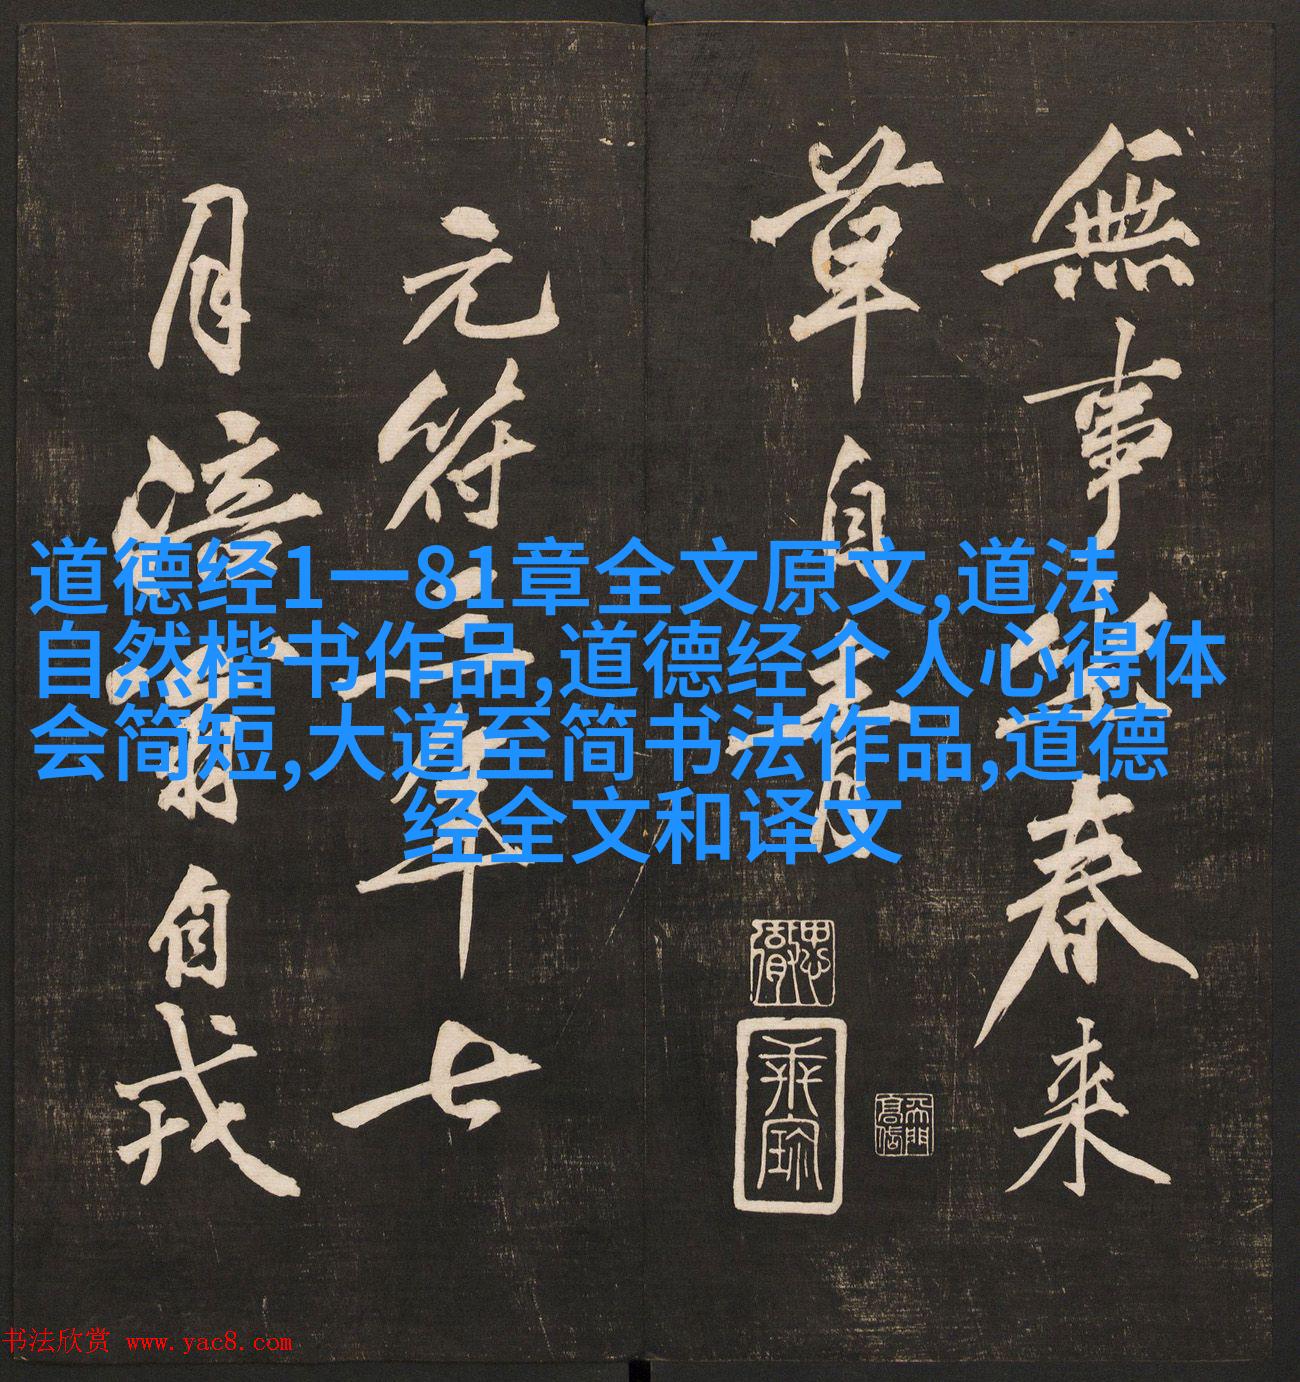 無事坐春来
草自青
元符三年七
月涪翁自戎
道德经1一81章全文原文,道法
自然楷书作品,道德经个人心得体
会简短,大道至简书法作品,道德
经全文和译文
书法欣赏 www.yac8.com